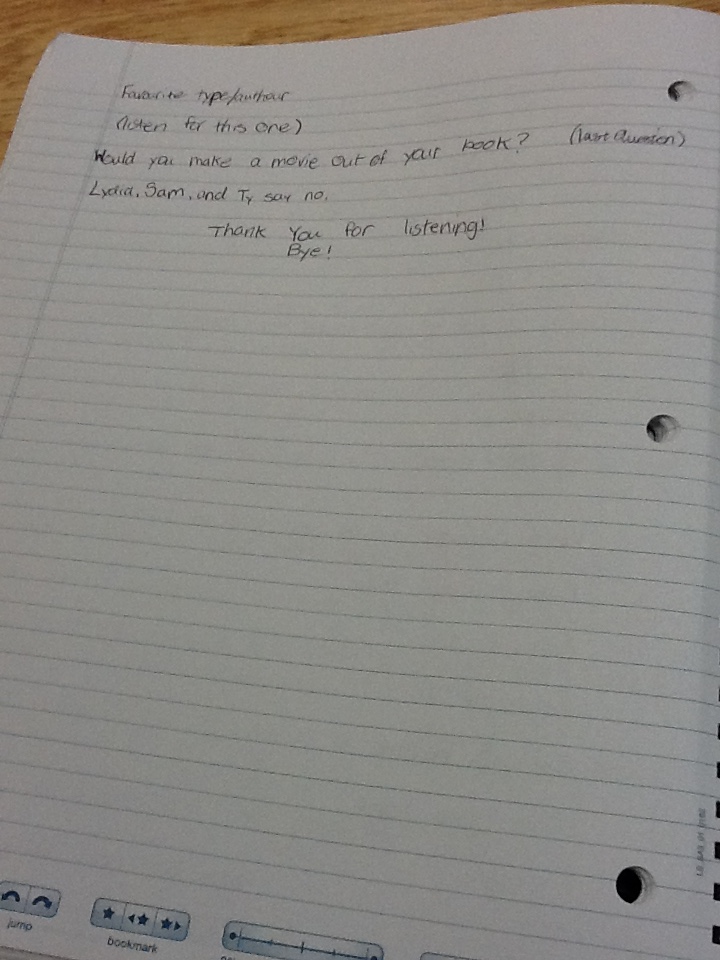 Favourite type/authour
(listen for this one)
Would you make a movie out of your book? (last Question)
Lydia, Sam, and Ty say no.
Thank You for listening!
Bye!
jump
bookmark